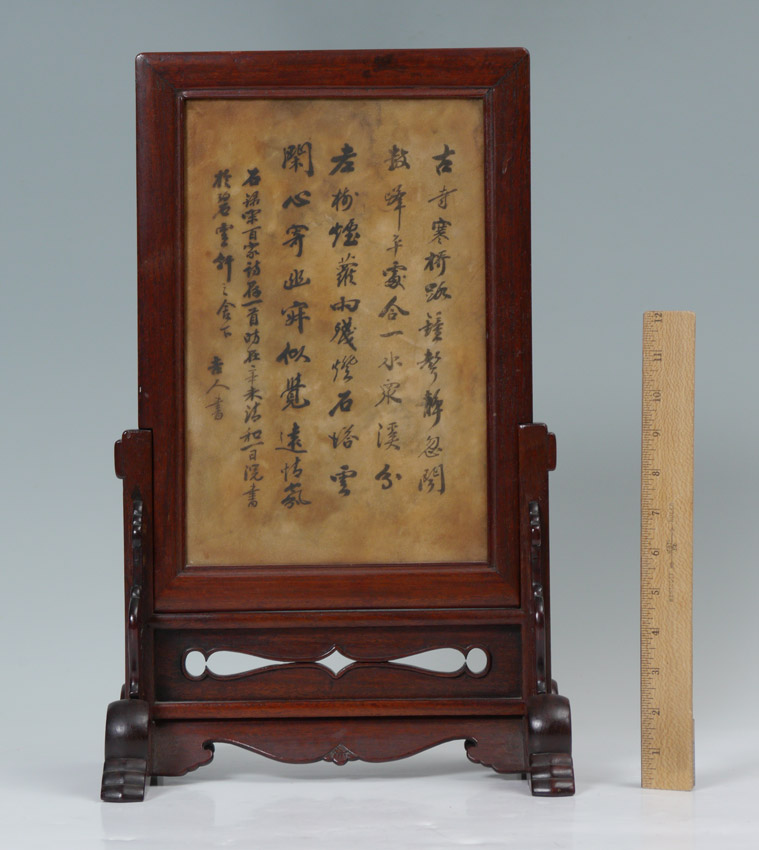 古寺寒橋路鐘聲靜忽聞
數峰平處合一水泉溪分
老樹煙蘿雨殘燈石塔雲
閑心寄幽寂似覺遠情氛
右錄宋百家詩存一首時在辛未清和一日書
於碧雲軒之下
人書
12
11
10
9
8
7
6
5
4
3
2
1